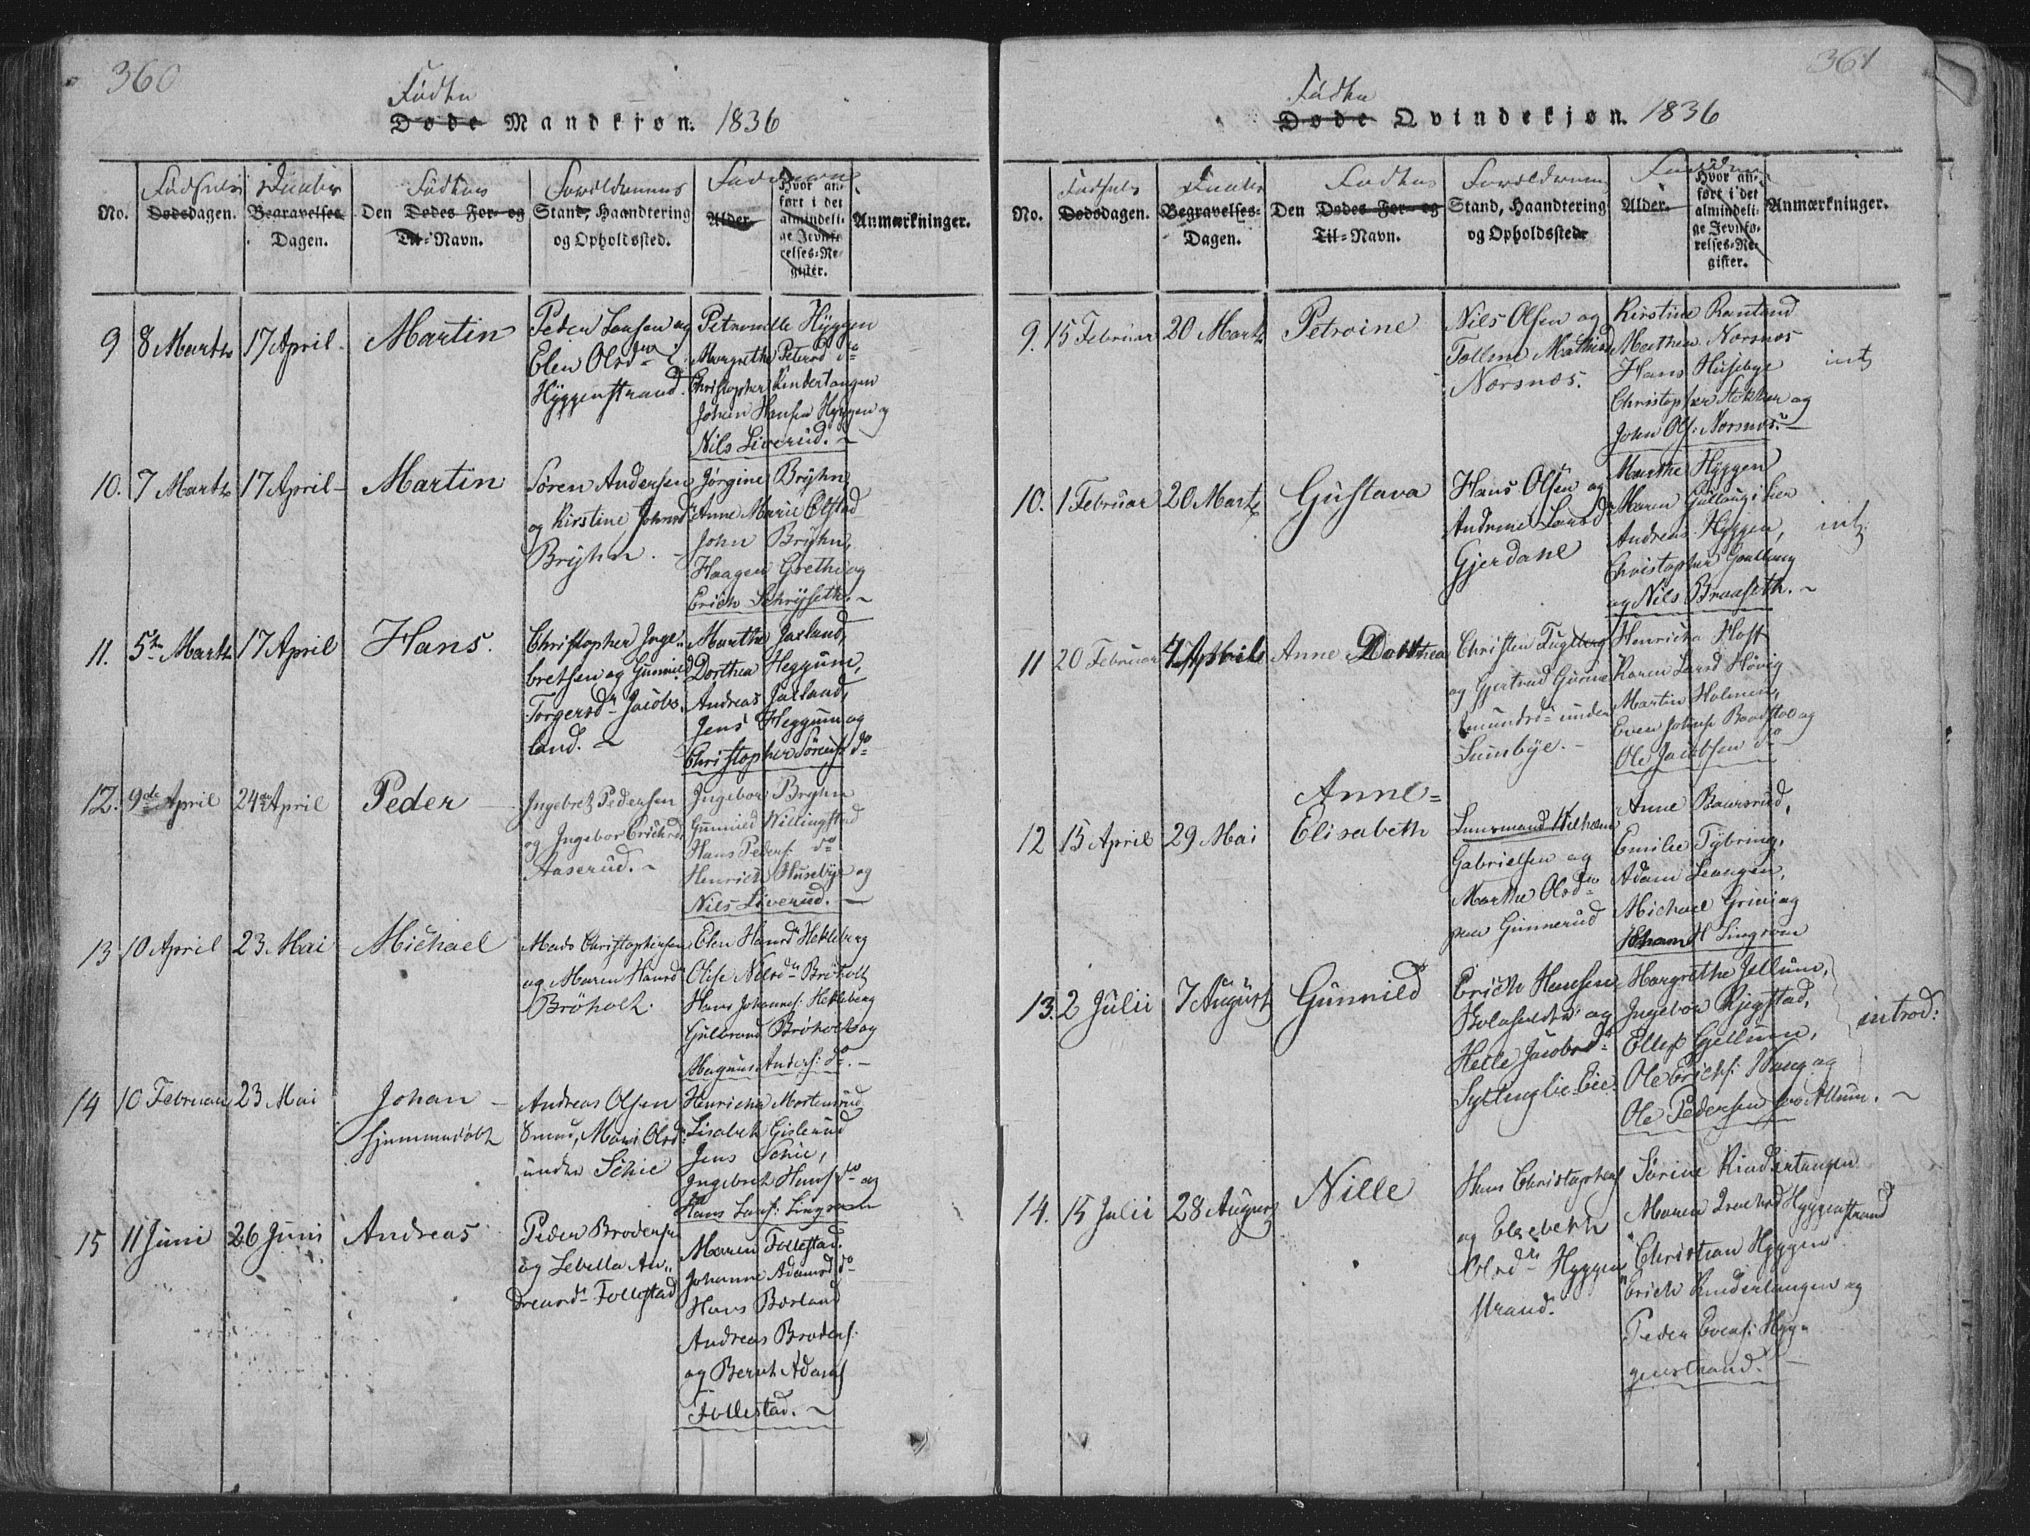 360
Fødte
Døde Mandkjøn. 1836
Fødsels Daabs Fødtes Forældrenes Faddere
No. Dødsdagen. Begravelses- Dagen. Den Dødes For- og Til-Navn. Stand, Haandtering og Opholdssted. Alder. Hvor anført i det almindelige Jevnførelses-Register. Anmærkninger.
9 8 Marts 17 April Martin
Peder Larsen og
Elen Olsd
Hyggenstrand.
Petronelle Hyggen
Margrethe Petersd do
Christopher Kindertangen
Johan Hansen Hyggen og
Nils Liverud.
10. 7 Marts 17 April Martin
Søren Andersen
og Kirstine Johnsd
Bryhn.
Jørgine Bryhn
Anne Marie Ølstad
John Bryhn,
Haagen Grethe og
Erich Schryseth.
11. 5te Marts 17 April Hans.
Christopher Inge-
bretsen og Gunnild
Torgersd Jacobs-
land.
Marthe Jaxland,
Dorthea Heggum,
Andreas Jaxland,
Jens Heggum og
Christopher Sørens. do
12. 9de April 24de April Peder
Ingebret Pedersen
og Ingebor Erichsd
Aaserud.
Ingebor Bryhn
Gunnild Willingstad
Hans Peders. do
Henrich Husebye og
Nils Liverud.
13 10 April 23 Mai Michael
Mads Christophersen
og Maren Hansd
Brøholt.
Elen Hansd Hekleberg
Olise Nilsd Brøholt
Hans Johannes. Hekleberg
Gulbrand Brøholt og
Magnus Anders. do.
14 10 Februar 23 Mai Johan
hjemmedøbt
Andreas Olsen
Smed, Mari Olsd
under Schie
Henricha Mortensrud
Lisabeth Gislerud
Jens Schie,
Ingebret Hans. do og
Hans Lars. Lingsom
15 11 Juni 26 Juni Andreas
Peder Brodersen
og Lebella An-
dreasd Follestad
Maren Follestad,
Johanne Adamsd do
Hans Børland
Andreas Broders.
og Bernt Adams
Follestad.
361
Fødte
Døde Qvindekjøn. 1836
Fødsels Daabs Fødtes Forældrenes Faddere
No. Dødsdagen. Begravelses- Dagen. Den Dødes For- og Til-Navn. Stand, Haandtering og Opholdssted. Alder. Hvor anført i det almindelige Jevnførelses-Register. Anmærkninger.
9. 15 Februar 20 Marts Petroine
Nils Olsen og
Tolline Mathisd
Norsnes.
Kirstine Ramtand
Marthea Norsnes
Hans Husebye
Christopher Stokker og
John Ols. Norsnes.
int
10. 1 Februar 20 Marts Gustava
Hans Olsen og
Andrine Larsd
Gjerdahl
Marthe Hyggen
Maren Gullaug i Lier
Andreas Hyggen,
Christopher Gullaug
og Nils Braaseth.
int.
11 20 Februar 4 April Anne Dorthea
Christen Fuglberg
og Gjertrud Gurine
Amundsd under
Lunsbye.
Henricka Hoff
Karen Larsd Høvig
Martin Holmen,
Even Johns. Baadstø og
Ole Jacobsen do
12 15 April 29 Mai Anne-
Elisabeth
Lensmand Wilhelm
Gabrielsen og
Marthe Olsd
paa Gunnerud
Anne Baersrud,
Emilie Tybring,
Adam Leangen,
Michael Grini og
Johan H Lingsom
13. 2 Julii 7 August Gunnild
Erich Hansen
og
Helle Jacobsd
Eie
Margrethe Jellum,
Ingebor Rygstad,
Ellef Gjellum,
Ole Erichs. Wang og
Ole Pedersen Allum.
introd:
14. 15 Julii 28 August Nille
Hans Christophers
og Elsebeth
Olsd Hyggen
strand.
Sørine Kindertangen
Maren Hyggenstrand
Christian Hyggen
Erich Kindertangen og
Peder Evens. Hyg-
genstrand.